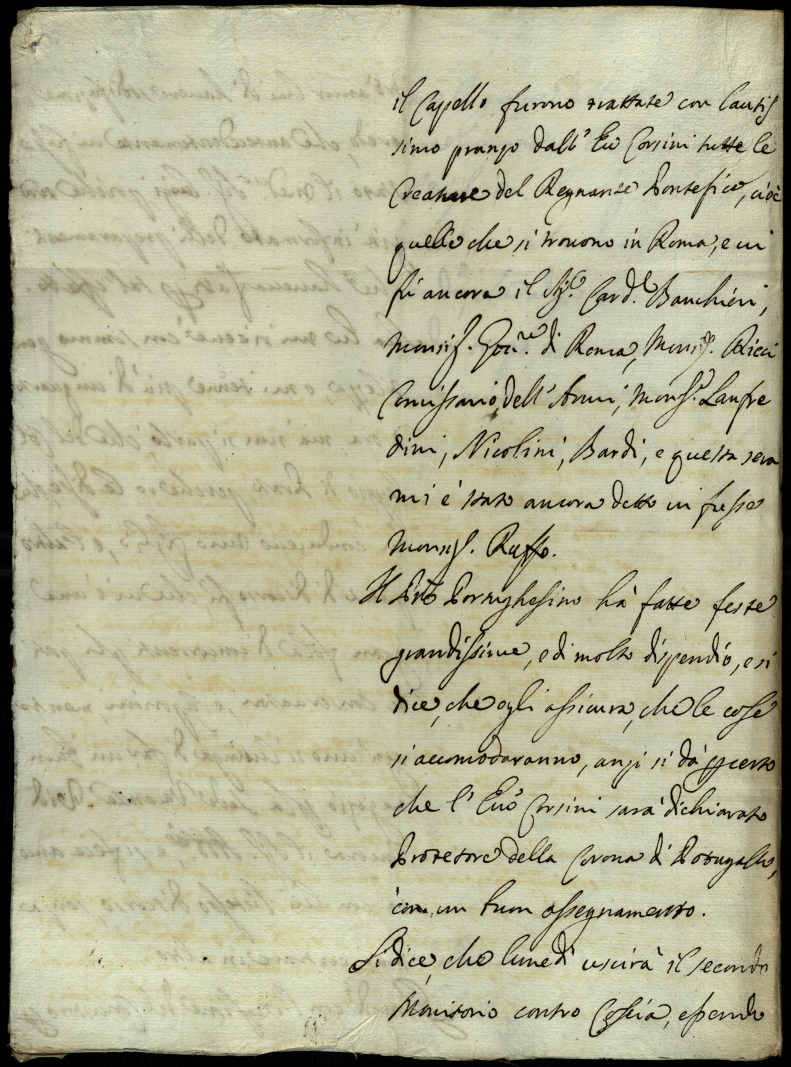 il Capello furono trattate con lautis
simo pranzo dall' Em̃o Corsini tutte le
Creature del Regnante Pontefice, cioè
quelle che si trovono in Roma, e vi
fù ancora il Sig.r Card.l Banchieri,
Monsig.r Gov.re di Roma, Monsig.r Ricci
Comissario dell' Armi, Mons.r Lanfre
dini, Nicolini, Bardi, e questa sera
mi è stato ancora detto vi fusse
Monsig.r Ruffo.
Il Portughesino hà fatte feste
grandissime, e di molto dispendio, e si
dice, che egli assicura, che le cose
si accomodaranno, anzi si dà p certo
che l' Em̃o Corsini sarà dichiarato
Protetore della Corona di Portugallo,
con un buon assegnamento.
Si dice, che lunedì uscirà il secondo
Monitorio contro Coscia, essendo